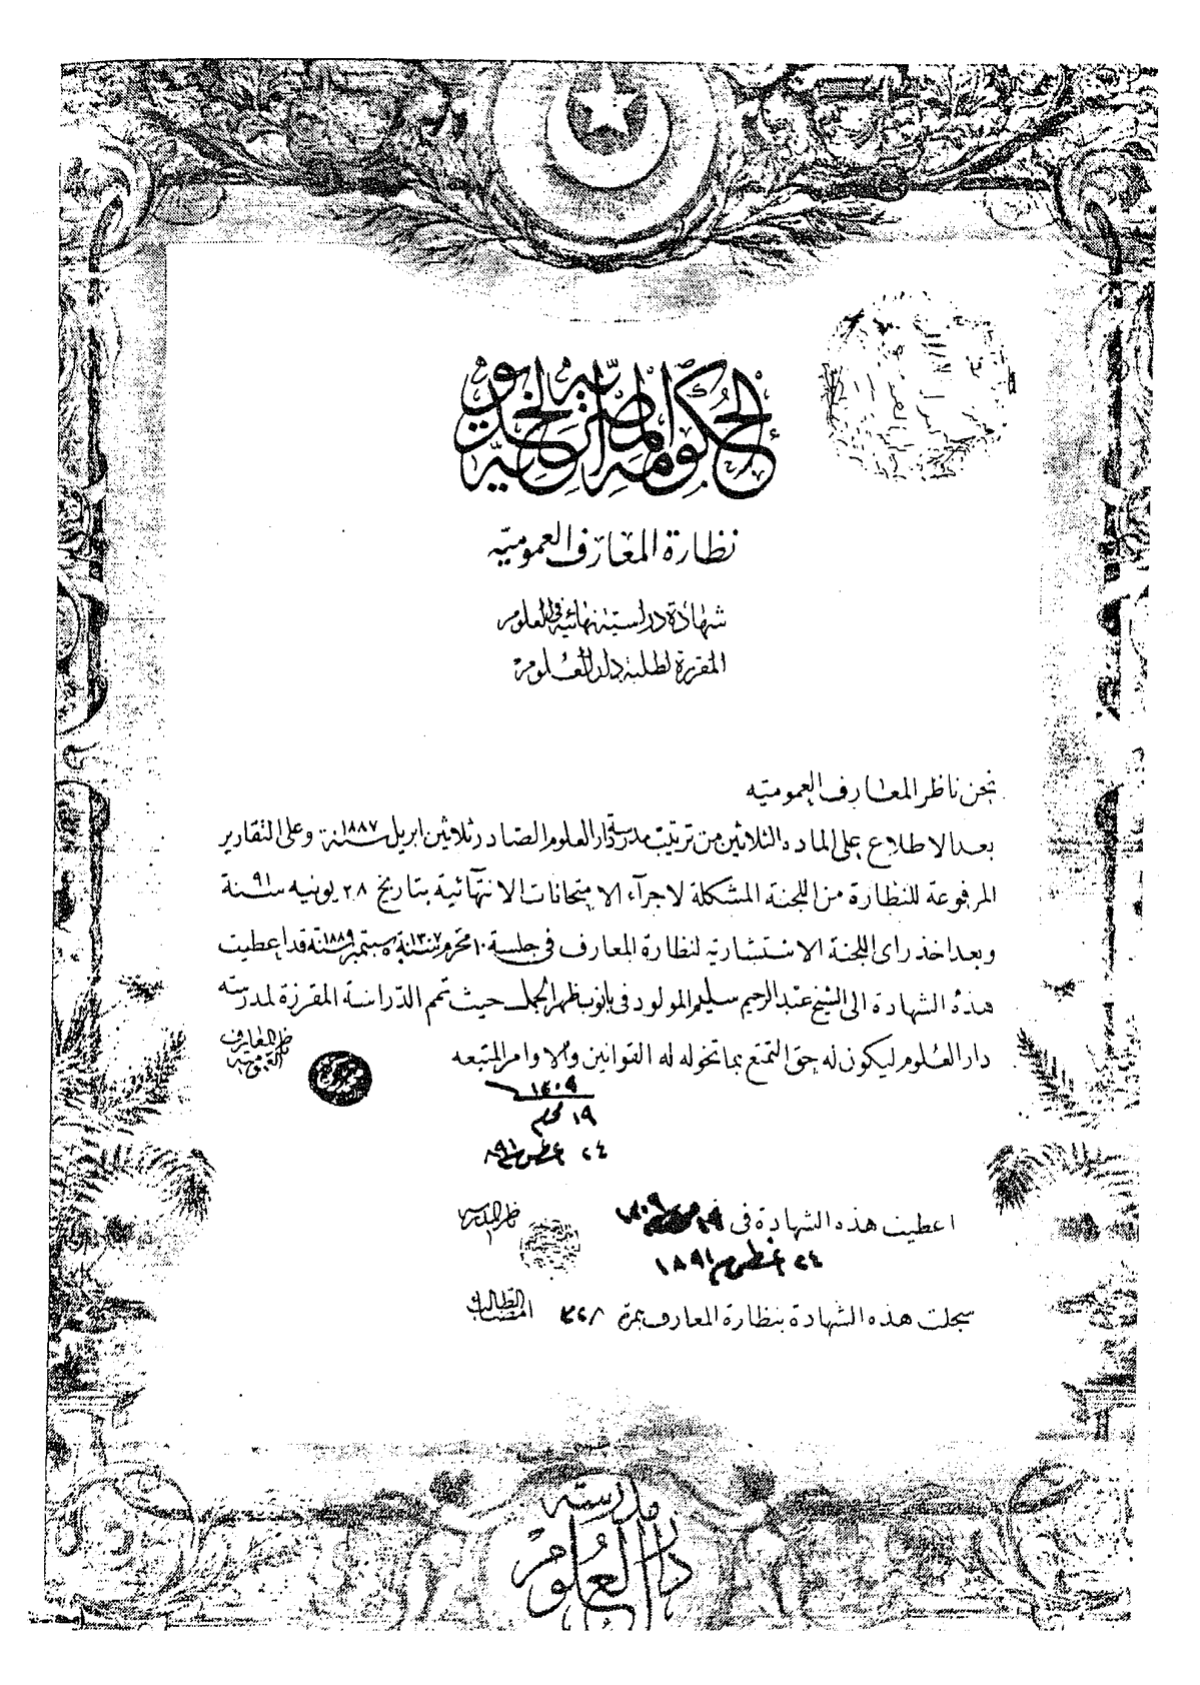 الحكومة المصرية الخديوية
نظارة المعارف العمومية
شهادة دراسية نهائية في العلوم
المقررة لطلبة دار العلوم
نحن ناظر المعارف العمومية
بعد الاطلاع على المادة الثلاثين من ترتيب مدرسة دار العلوم الصادر ثلاثين ابريل سنة ١٨٨٧ وعلى التقارير
المرفوعة للنظارة من اللجنة المشكلة لاجراء الامتحانات الانتهائية بتاريخ ٢٨ يونيه سنة ٩١
وبعد اخذ راى اللجنة الاستشارية لنظارة المعارف في جلسة ١٠ محرم سنة ١٣٠٧ ٥ سبتمبر سنة ١٨٨٩ قد اعطيت
هذه الشهادة الى الشيخ عبد الرحيم سليم المولود في بانوب ظهر الجمل حيث تمم الدراسة المقررة لمدرسة
دار العلوم ليكون له حق التمتع بما تخوله له القوانين والاوامر المتبعه
ناظر المعارف
العمومية
١٣٠٩
١٩ محرم
٢٤ اغسطس ٨٩١
اعطيت هذه الشهادة في ١٩
ناظر المدرسة
٢٤ اغسطس ١٨٩١
سجلت هذه الشهادة بنظارة المعارف بنمرة
الطالب
مدرسة
دار العلوم